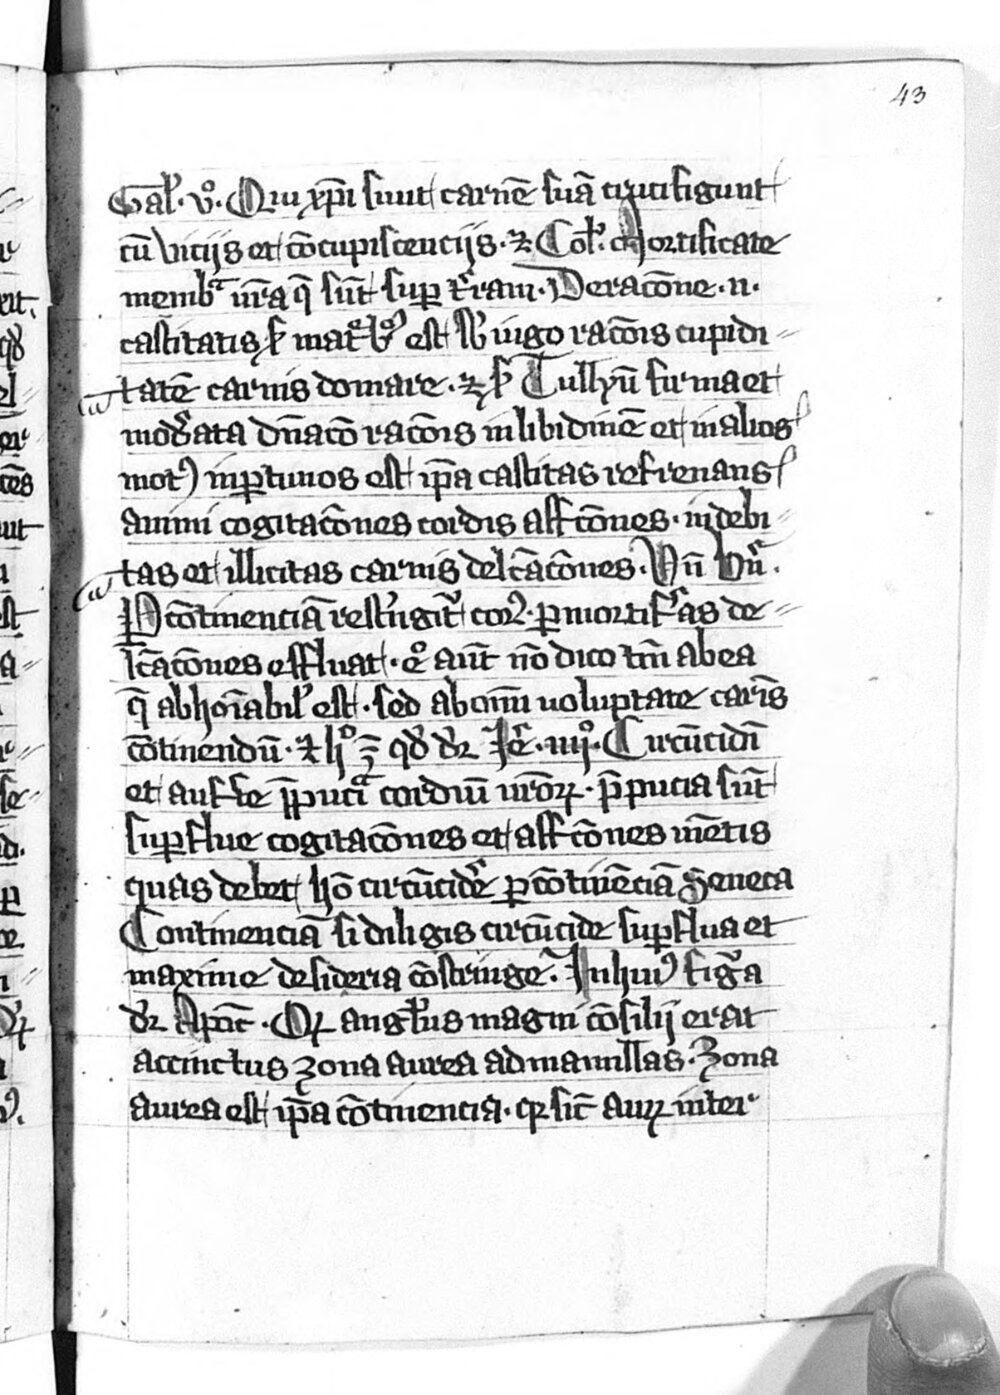 43
Gal'. v°. Qui xp̄i sunt carnē suā crucifigunt
cū viciis et cōcupiscenciis. ⁊ Col'. Mortificate
membra ur̄a q̄ sūt sup t'ram. De racōne .n.
castitatis ẜ mac°b° est sb iugo racōis cupidi
tatē carnis domare. ⁊ ẜ Tullyū firma et
mod'ata dn̄acō racōis in libidinē et in alios
mot9 inportunos est ip̄a castitas refrenans
animi cogitacōnes cordis affcōnes. indebi
tas et illicitas carnis delcācōnes. Vn̄
P cōtinenciā rest'ngit' cor. p mortif'as de
lcācōnes effluat. e° aut̄ nō dico tm̄ ab ea
q̄ abhoīabil' est. sed ab om̄i uoluptate carīs
cōtinendū. ⁊ h° ē qd dr Je'. iiij°. Circūcidī
et aufte p̄puc̄ cordiū ur̄oꝝ. p̄pucia sūt
supflue cogitacōnes et affcōnes mētis
quas debet hō circūcid'e p cōtinēciā Seneca
Continenciā si diligis circūcide supflua et
maxime desideria cōstringe. In hui9 fig'a
dr Apoc̄. Qꝫ angl'us magni cōsilij erat
accinctus zona aurea ad mamillas. Zona
aurea est ip̄a cōtinencia. qꝫ sic̄ auꝝ inter